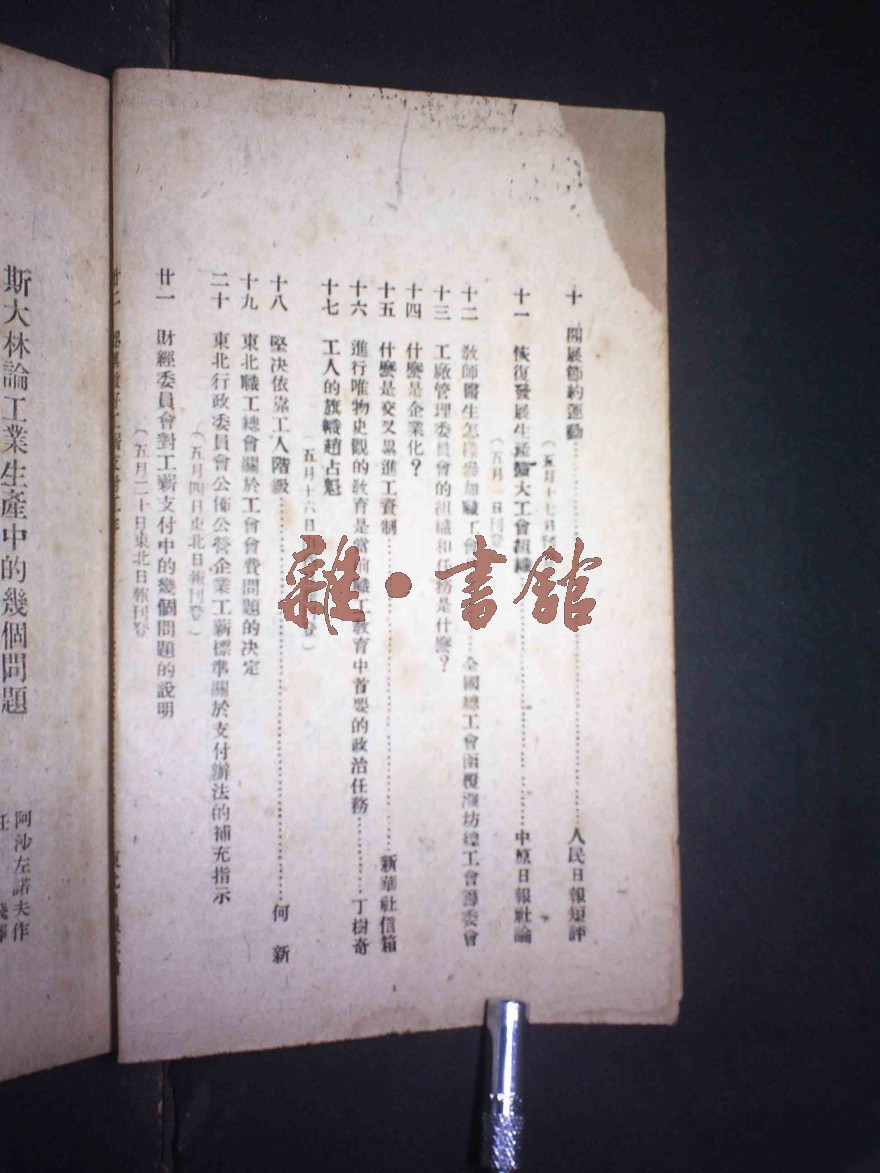 十　開展節約運動……………人民日報短評
（五月十七日
十一　恢復發展生產擴大工會組織……………中原日報社論
（五月一日刊登
十二　教師醫生怎樣參加職工會……全國總工會函覆濰坊總工會籌委會
十三　工廠管理委員會的組織和任務是什麼？
十四　什麼是企業化？
十五　什麼是交叉累進工資制……………新華社信箱
十六　進行唯物史觀的教育是當前職工教育中首要的政治任務…………丁樹奇
十七　工人的旗幟趙占魁
（五月十六日　登）
十八　堅決依靠工人階級……………何　新
十九　東北職工總會關於工會會費問題的決定
二十　東北行政委員會公佈公營企業工薪標準關於支付辦法的補充指示
（五月四日東北日報刊登）
廿一　財經委員會對工薪支付中的幾個問題的說明
（五月二十日東北日報刊登）
斯大林論工業生產中的幾個問題
阿沙左諾夫作
雜・書館